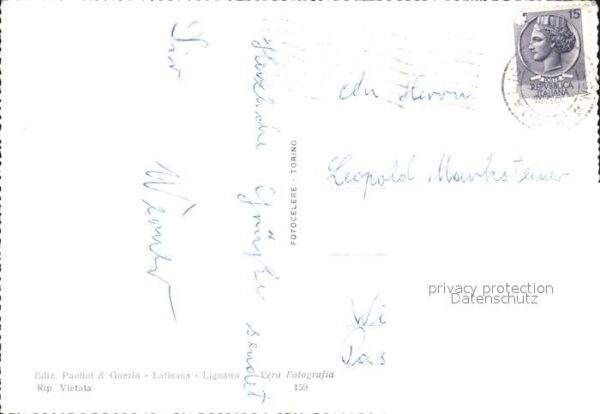 Herzliche Grüße sendet
Dir
FOTOCELERE - TORINO
15
POSTE
REPVBBLICA
ITALIANA
An Herrn
Leopold Marksteiner
Wi
Pas
privacy protection
Datenschutz
Ediz. Paolini & Guerin - Latisana - Lignano Vera Fotografia
Rip. Vietata 159